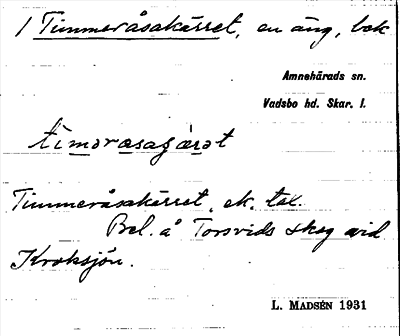 1 Timmeråsakärret, en äng, bok
Amnehärads sn.
Vadsbo hd. Skar. l.
Timmeråsakärret, ek. tax.
Bel. å Torsvids skog vid
Kroksjön.
L. MADSÉN 1931